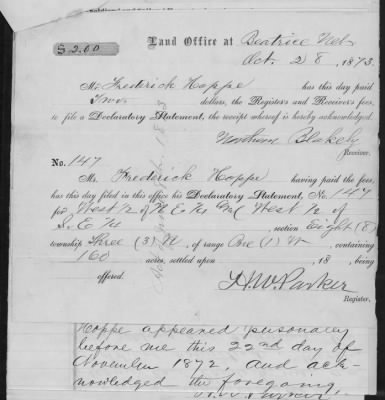 $ 2.00
Land Office at Beatrice Neb
Oct. 28, 1873.
Mr. Frederick Hoppe has this day paid
Two dollars, the Register's and Receiver's fees,
to file a Declaratory Statement, the receipt whereof is hereby acknowledged.
Nathan Blakely
Receiver.
No. 147
Mr. Frederick Hoppe having paid the fees,
has this day filed in this office his Declaratory Statement, No 147
for West 1/2 of N E 1/4 West 1/2 of
S. E 1/4 , section Eight (8)
township Three (3) N , of range One (1) W , containing
160 acres, settled upon , 18 , being
offered.
H. W. Parker
Register,
Hoppe appeared personally
before me this 22nd day of
November 1872, and ack-
nowledged the foregoing,
H. W. Parker